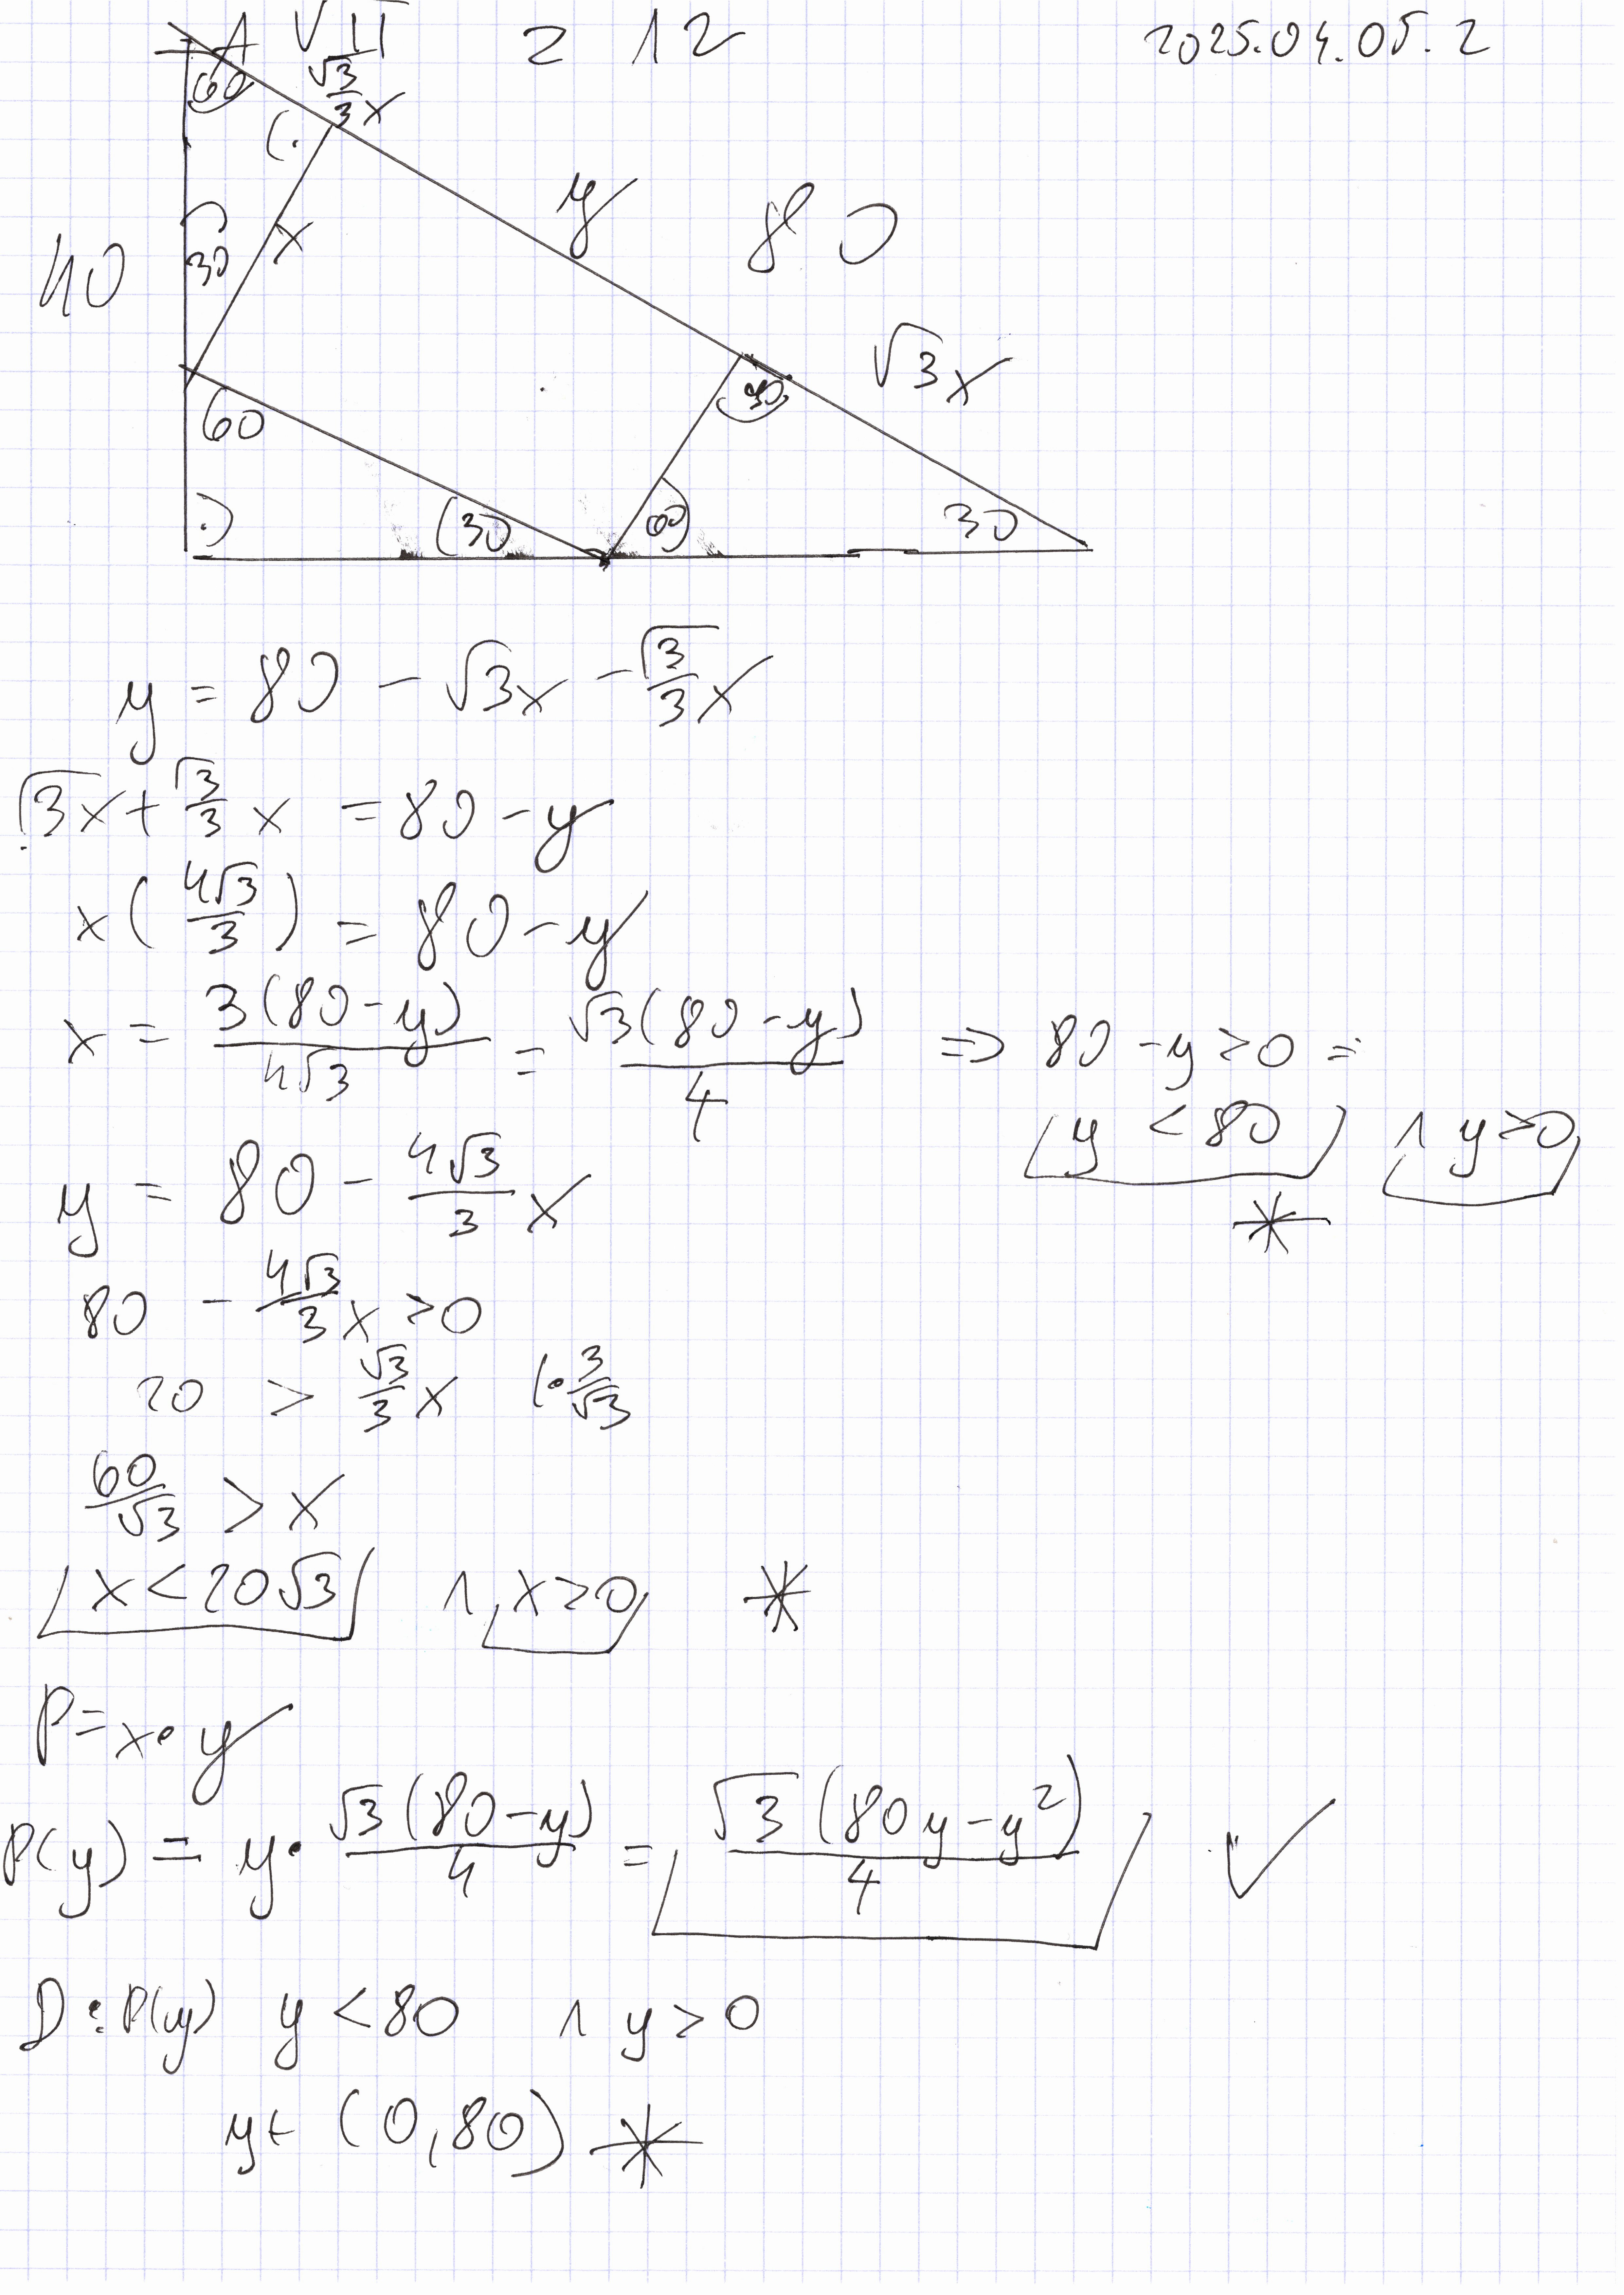 A VII z 12 2025.04.05.2
60
√3/3 x
30
x
40
y
80
√3x
90
60
30
60
30
y = 80 - √3x - √3/3 x
√3x + √3/3 x = 80 - y
x ( 4√3/3 ) = 80 - y
x = 3(80-y)/4√3 = √3(80-y)/4 => 80 - y > 0 =
y < 80 ∧ y > 0
*
y = 80 - 4√3/3 x
80 - 4√3/3 x > 0
20 > √3/3 x |• 3/√3
60/√3 > x
x < 20√3 ∧ x > 0 *
P = x • y
P(y) = y • √3(80-y)/4 = √3(80y-y²)/4 ✓
D: P(y) y < 80 ∧ y > 0
y ∈ (0,80) *